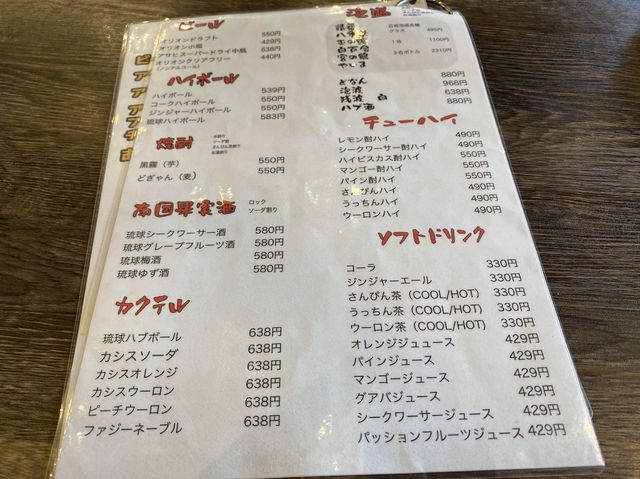 ビール
オリオンドラフト 550円
オリオン小瓶 429円
アサヒスーパードライ中瓶 638円
オリオンクリアフリー 440円
(ノンアルコール)
ハイボール
ハイボール 539円
コークハイボール 550円
ジンジャーハイボール 550円
琉球ハイボール 583円
焼酎
水割り
ソーダ割
さんぴん茶割り
お湯割り
黒霧(芋) 550円
どぎゃん(麦) 550円
南国果実酒
ロック
ソーダ割り
琉球シークワーサー酒 580円
琉球グレープフルーツ酒 580円
琉球梅酒 580円
琉球ゆず酒 580円
カクテル
琉球ハブボール 638円
カシスソーダ 638円
カシスオレンジ 638円
カシスウーロン 638円
ピーチウーロン 638円
ファジーネーブル 638円
グラス 495円
1合 1100円
3合ボトル 2310円
どなん 880円
泡波 968円
残波 白 638円
ハブ酒 880円
チューハイ
レモン酎ハイ 490円
シークワーサー酎ハイ 490円
ハイビスカス酎ハイ 550円
マンゴー酎ハイ 550円
パイン酎ハイ 550円
さんぴんハイ 490円
うっちんハイ 490円
ウーロンハイ 490円
ソフトドリンク
コーラ 330円
ジンジャーエール 330円
さんぴん茶(COOL/HOT) 330円
うっちん茶(COOL/HOT) 330円
ウーロン茶(COOL/HOT) 330円
オレンジジュース 429円
パインジュース 429円
マンゴージュース 429円
グアバジュース 429円
シークワーサージュース 429円
パッションフルーツジュース 429円